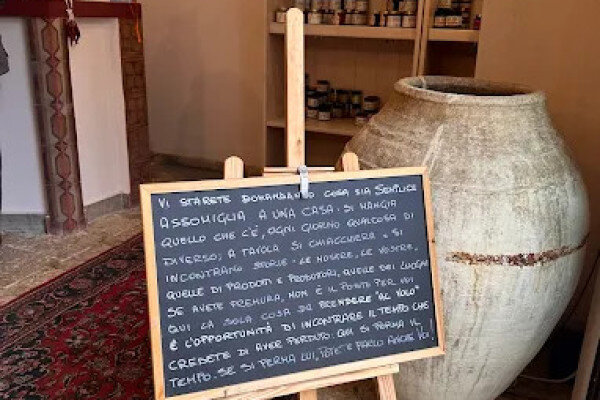 VI STARETE DOMANDANDO COSA SIA SEMPLICE
ASSOMIGLIA A UNA CASA. SI MANGIA
QUELLO CHE C'È, OGNI GIORNO QUALCOSA DI
DIVERSO; A TAVOLA SI CHIACCHIERA E SI
INCONTRANO STORIE: LE NOSTRE, LE VOSTRE,
QUELLE DI PRODOTTI E PRODUTTORI, QUELLE DEI LUOGHI
SE AVETE PREMURA, NON È IL POSTO PER VOI
QUI LA SOLA COSA DA PRENDERE "AL VOLO"
È L'OPPORTUNITÀ DI INCONTRARE IL TEMPO CHE
CREDETE DI AVER PERDUTO. QUI SI FERMA IL
TEMPO. SE SI FERMA LUI, POTETE FARLO ANCHE VOI!